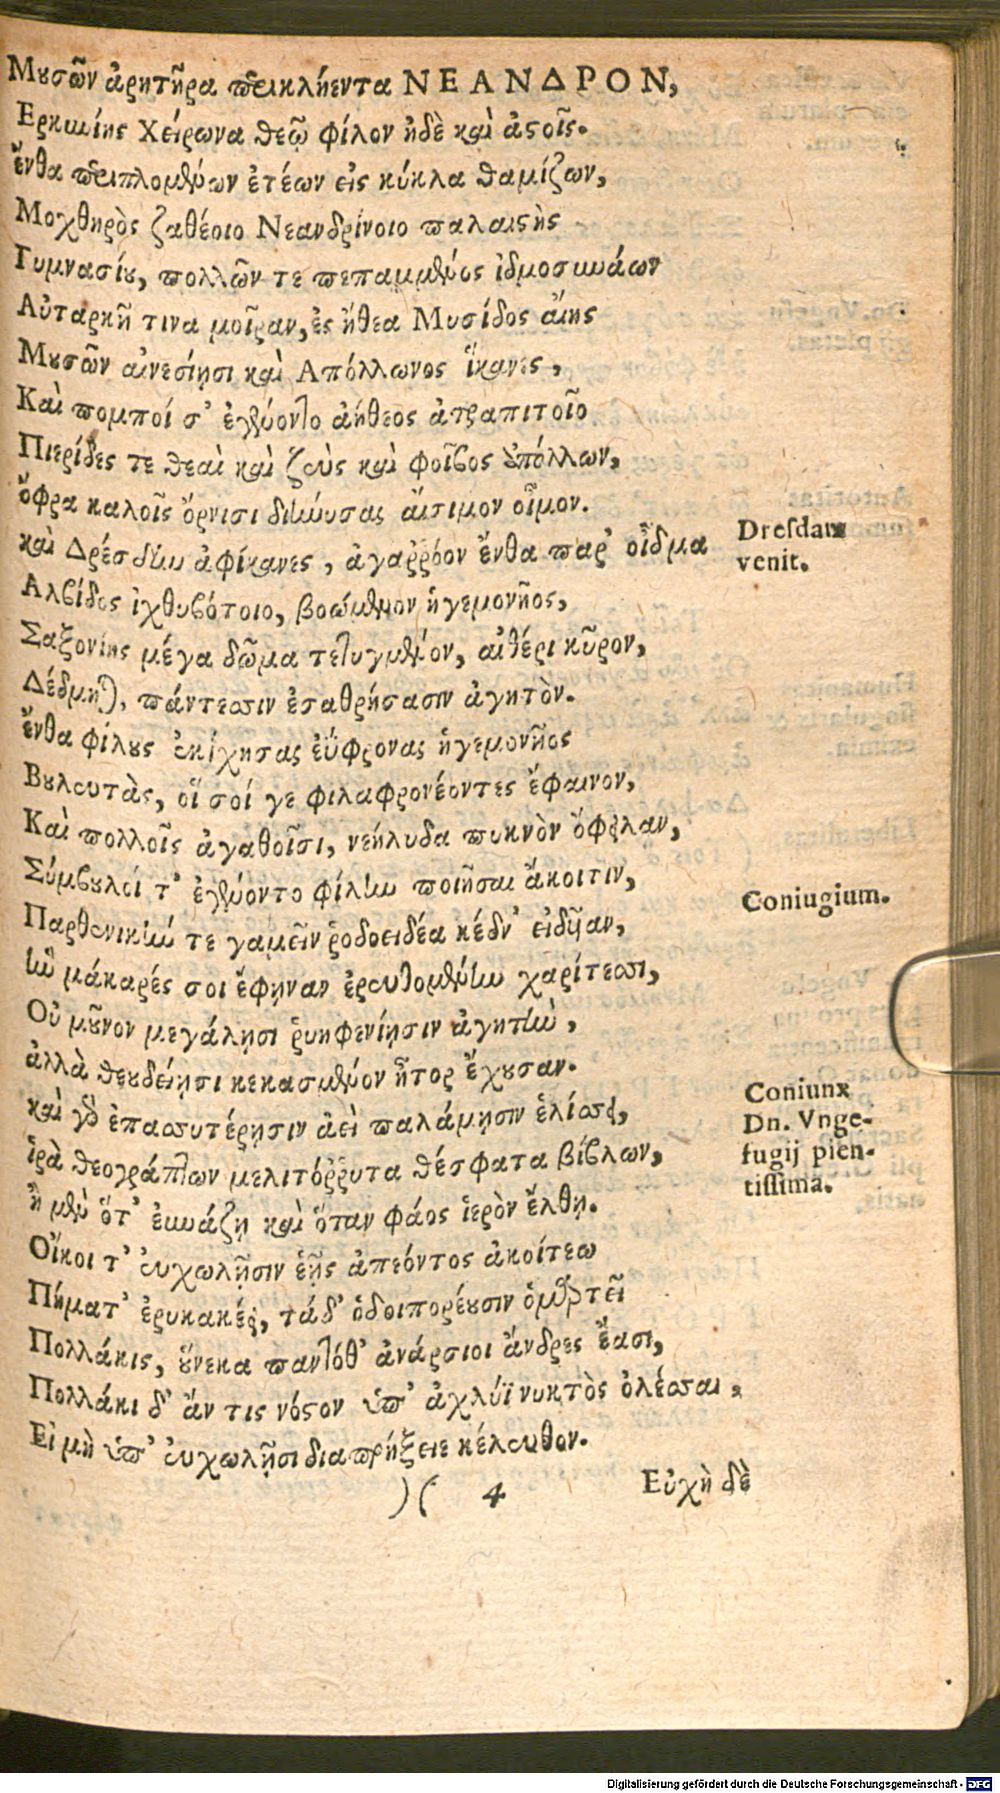 Μουσῶν ἀρητῆρα περικλήεντα ΝΕΑΝΔΡΟΝ,
Ερκυνίης Χείρωνα θεῷ φίλον ἠδὲ καὶ ἀστοῖς.
ἔνθα περιπλομένων ἐτέων εἰς κύκλα θαμίζων,
Μοχθηρὸς ζαθέοιο Νεανδρίνοιο παλαιστὴς
Γυμνασίου, πολλῶν τε πεπαμμένος ἰδμοσυνάων
Αὐταρκῆ τινα μοῖραν, ἐς ἤθεα Μυσίδος αἴης
Μουσῶν αἰνεσίῃσι καὶ Απόλλωνος ἵκανες,
Καὶ πομποί σ' ἐγένοντο ἀήθεος ἀτραπιτοῖο
Πιερίδες τε θεαὶ καὶ ζεὺς καὶ φοῖβος ἀπόλλων,
ὄφρα καλοῖς ὄρνισι διανύσας αἴτιμον οἶμον.
καὶ Δρέσδην ἀφίκανες, ἀγαῤῥόον ἔνθα παρ' οἶδμα
Αλβίδος ἰχθυβότοιο, βοώμενον ἡγεμονῆος,
Σαξονίης μέγα δῶμα τετυγμένον, αἰθέρι κῦρον,
Δέδμηται, πάντεσσιν ἐσαθρήσασιν ἀγητὸν.
ἔνθα φίλους ἐκίχησας ἐύφρονας ἡγεμονῆος
Βουλευτὰς, οἵ σοί γε φιλαφρονέοντες ἔφαινον,
Καὶ πολλοῖς ἀγαθοῖσι, νεήλυδα πυκνὸν ὄφελλαν,
Σύμβουλοί τ' ἐγένοντο φίλην ποιῆσαι ἄκοιτιν,
Παρθενικήν τε γαμεῖν ῥοδοειδέα κέδν' εἰδυῖαν,
ἣν μάκαρές σοι ἔφηναν ἐρευθομένην χαρίτεσσι,
Οὐ μοῦνον μεγάλῃσι ῥυηφενίῃσιν ἀγητὴν,
ἀλλὰ θευδείῃσι κεκασμένον ἦτορ ἔχουσαν.
καὶ γὰρ ἐπασσυτέρῃσιν ἀεὶ παλάμῃσιν ἑλίσσει,
ἱρὰ θεογράπτων μελιτόῤῥυτα θέσφατα βίβλων,
ἢ μὲν ὅτ' ἐννάζῃ καὶ ὅταν φάος ἱερὸν ἔλθῃ.
Οἴκοι τ' εὐχωλῇσιν ἑῇς ἀπεόντος ἀκοίτεω
Πήματ' ἐρυκακέει, τάδ' ὁδοιπορέουσιν ὁμαρτεῖ
Πολλάκις, οὕνεκα παντόθ' ἀνάρσιοι ἄνδρες ἔασι,
Πολλάκι δ' ἄν τις νόστον ὑπ' ἀχλύϊ νυκτὸς ὀλέσσαι,
Εἰ μὴ ὑπ' εὐχωλῇσι διαπρήξειε κέλευθον.
)( 4 Εὐχὴ δὲ
Dresdam
venit.
Coniugium.
Coniunx
Dn. Vnge-
fugij pien-
tissima.
Digitalisierung gefördert durch die Deutsche Forschungsgemeinschaft - DFG